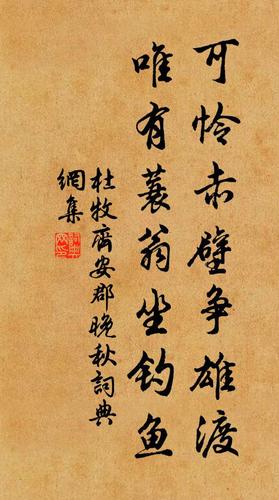 可怜赤壁争雄渡
唯有蓑翁坐钓鱼
杜牧齊安郡晚秋詞典
網集